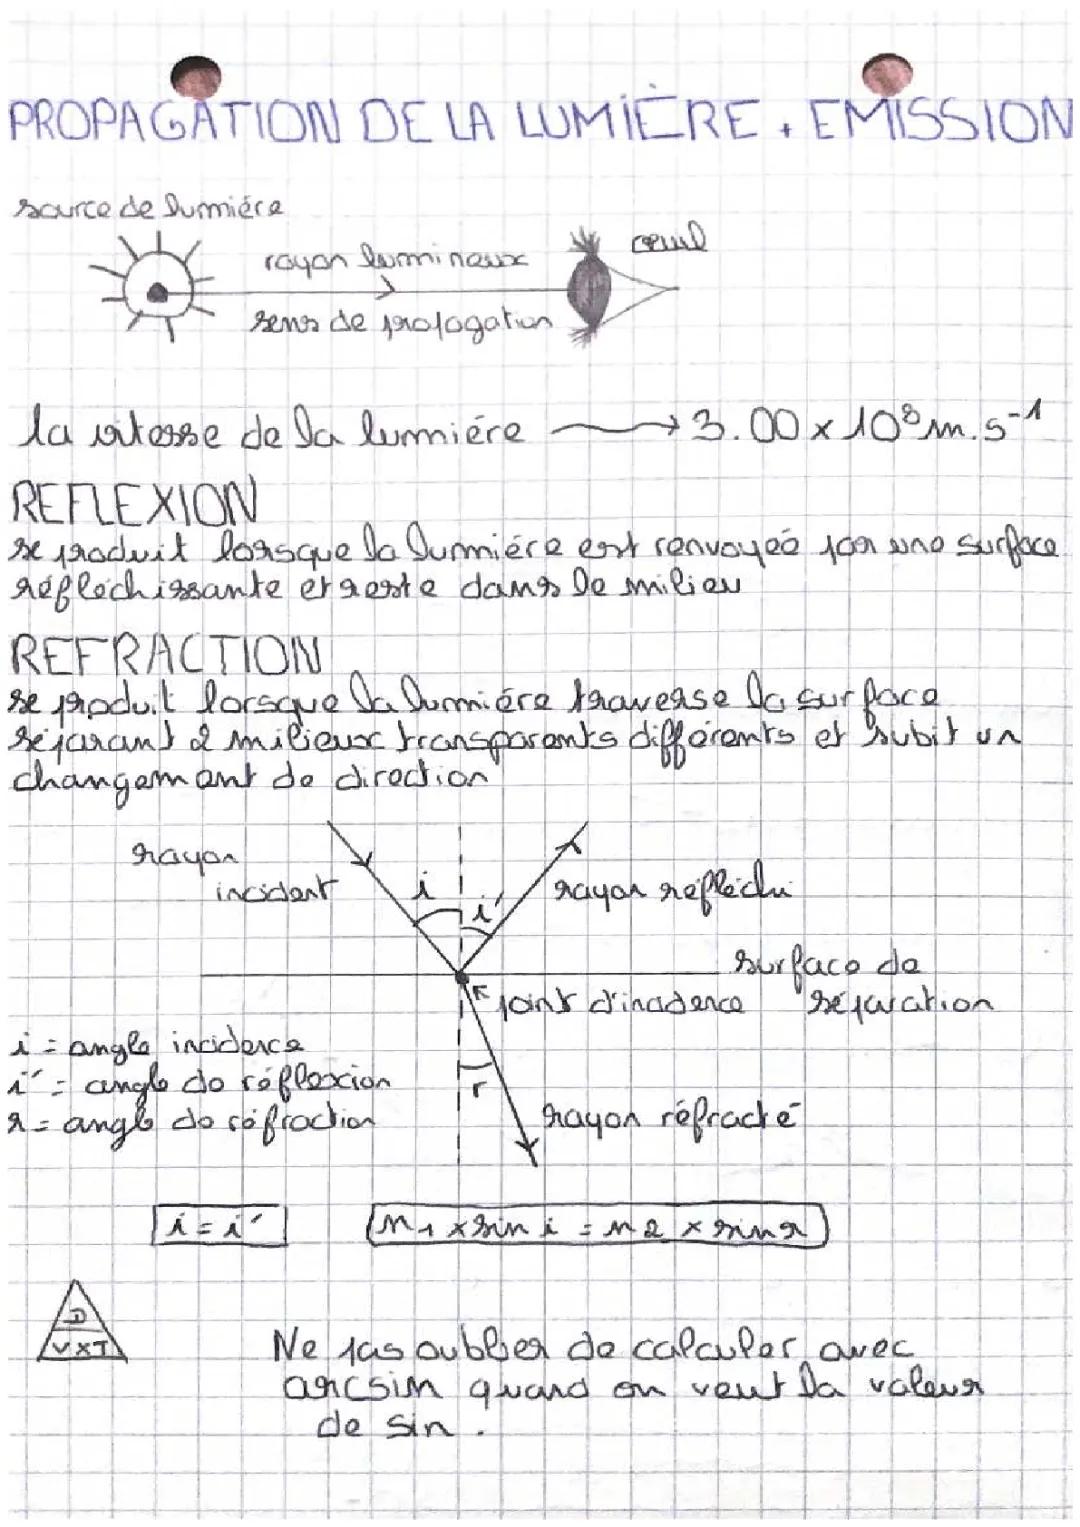 PROPAGATION DE LA LUMIÈRE + EMISSION
source de lumiére
rayon lumineux
oeuil
sens de propagation
la vitesse de la lumiére → 3.00 x 10⁸ m.s⁻¹
REFLEXION
se produit lorsque la lumiére est renvoyeé par une surface
réfléchissante et reste dans le milieu
REFRACTION
se produit lorsque la lumiére traverse la surface
séparant 2 milieux transparents différents et subit un
changement de direction
rayon
incident
i
i'
rayon réfléchi
surface de
séparation
point d'incidence
i = angle incidence
i' = angle de réflexion
r = angle de réfraction
r
rayon réfracté
i = i'
n1 x sin i = n2 x sin r
D
V X T
Ne pas oublier de calculer avec
arcsin quand on veut la valeur
de sin.